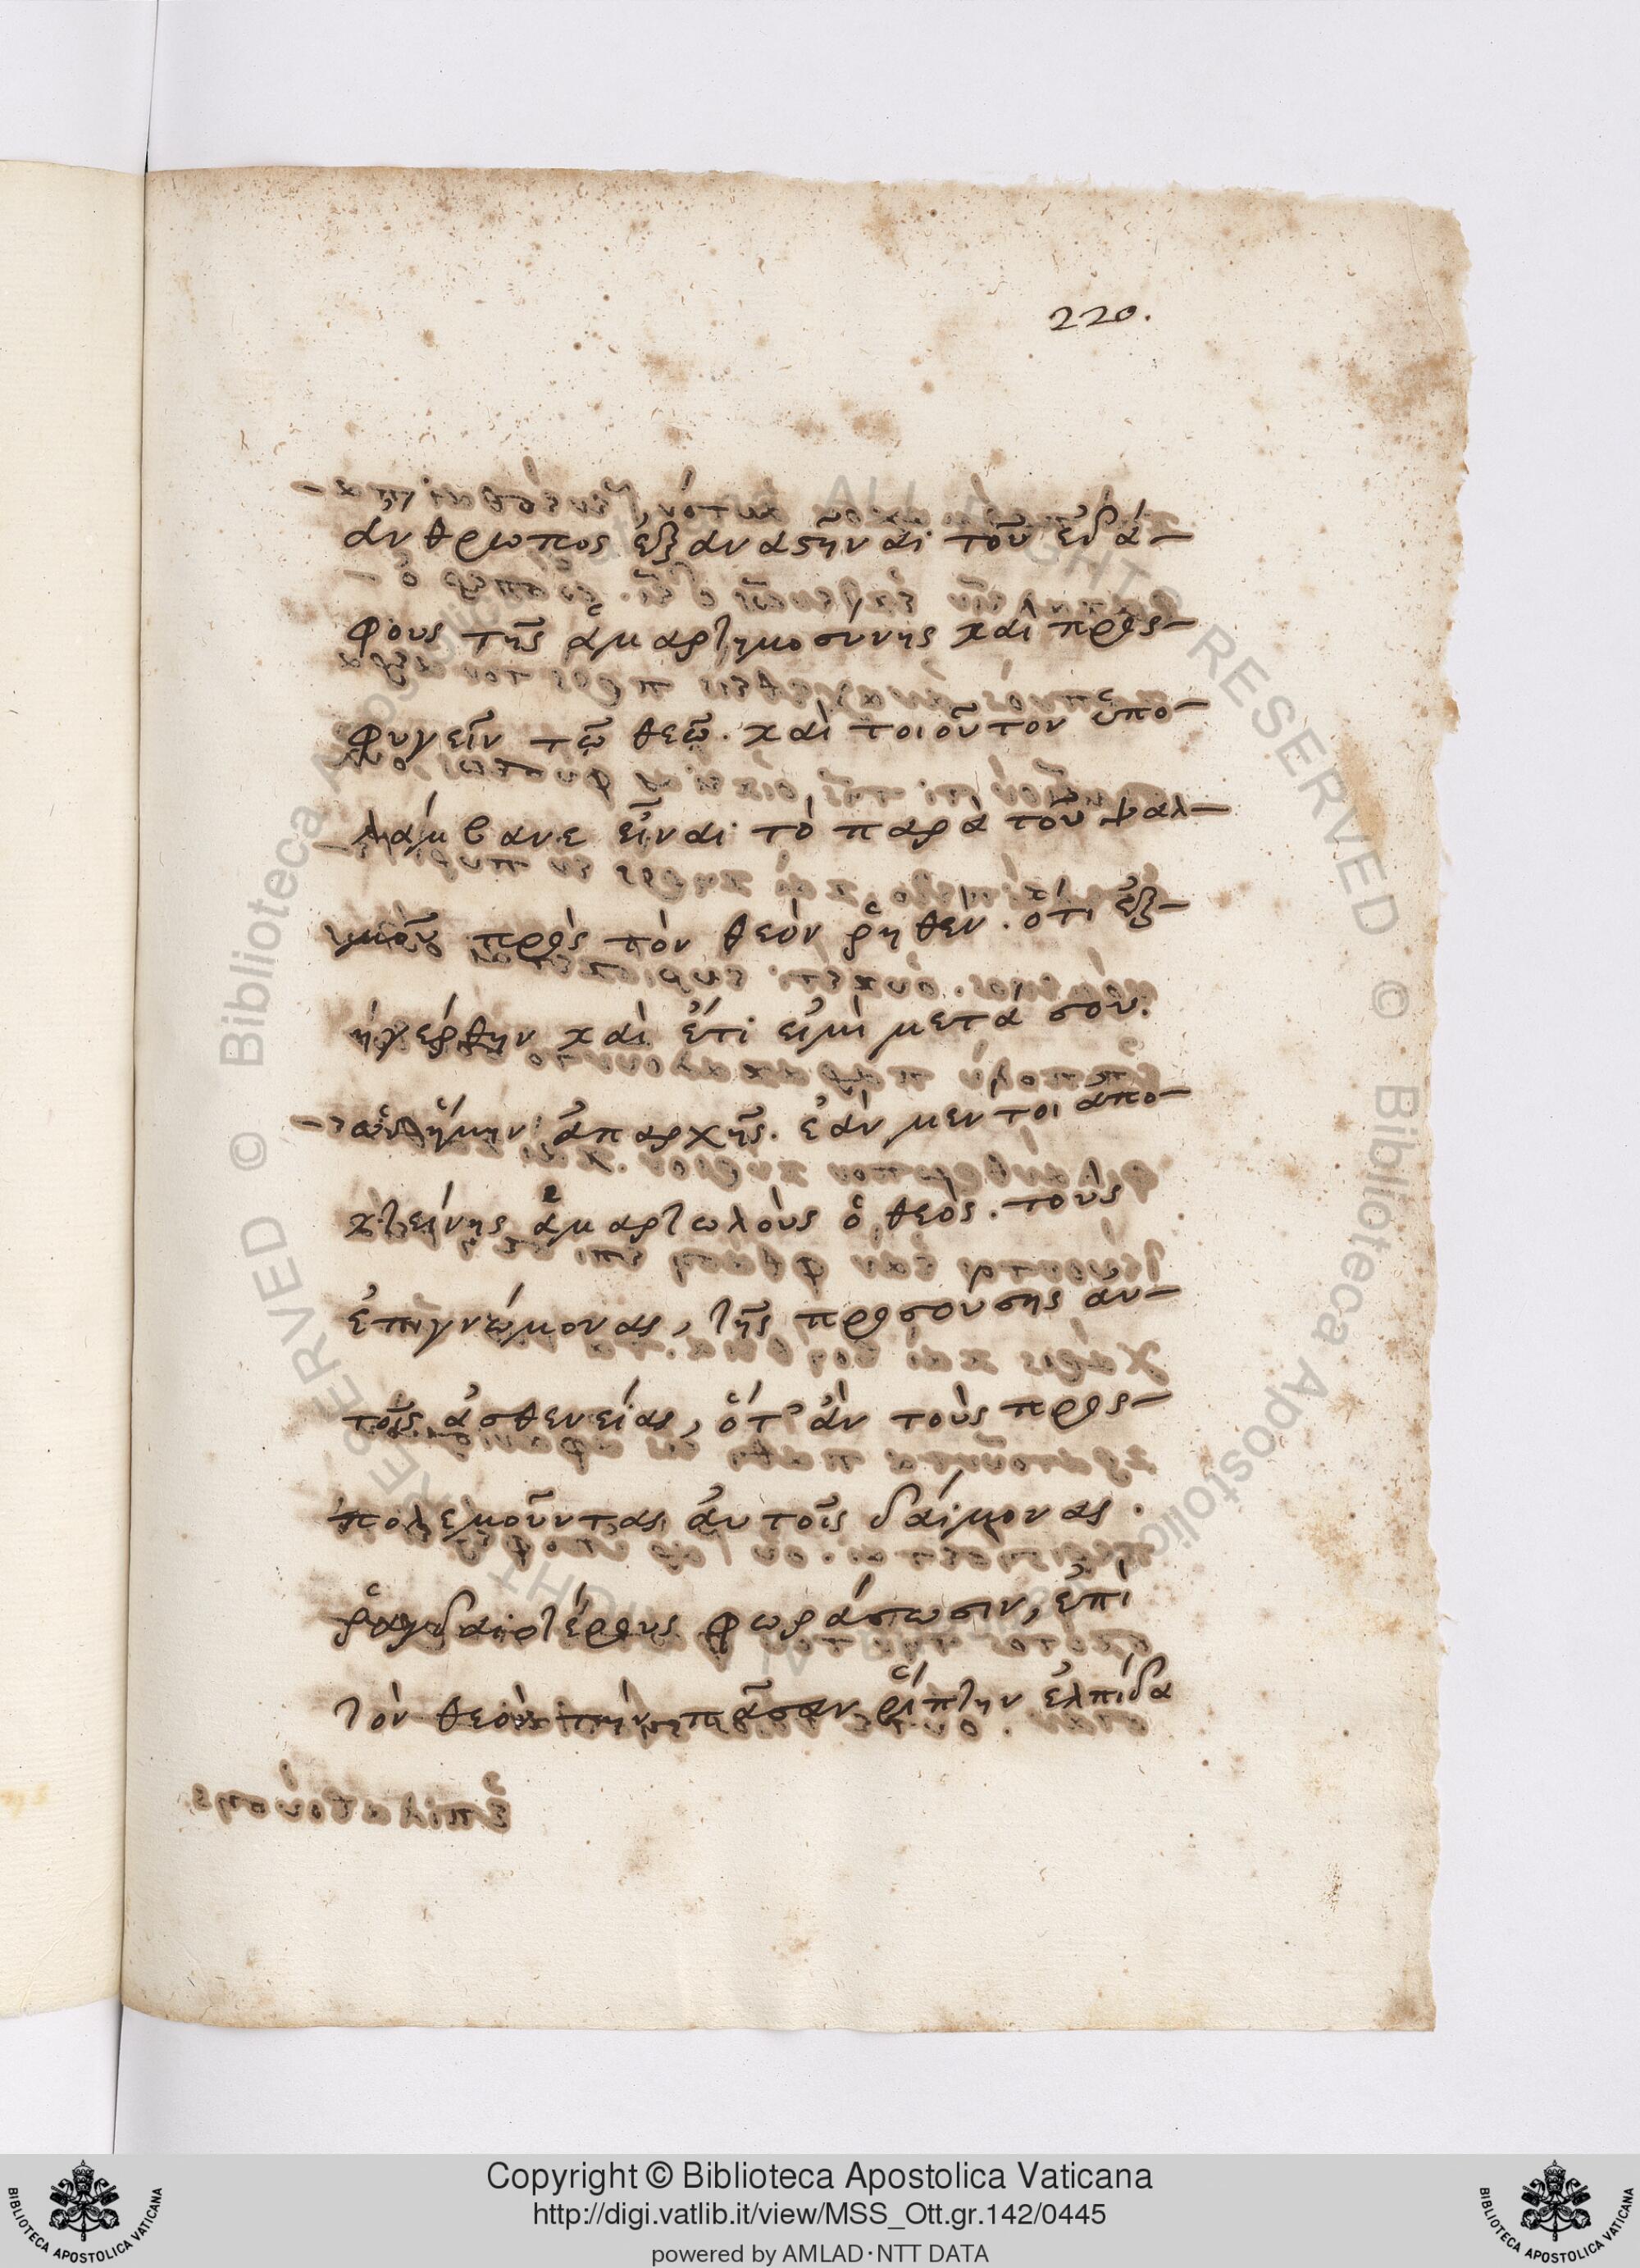 220.
ἄνθρωπος ἐξαναστῆναι τοῦ ἐδά-
φους τῆς ἁμαρτημοσύνης καὶ προς-
φυγεῖν τῷ θεῷ. καὶ τοιοῦτον ὑπο-
λάμβανε εἶναι τὸ παρὰ τοῦ ψαλ-
μοῦ πρὸς τὸν θεὸν ῥηθέν. ὅτι ἐξ-
ηγέρθην καὶ ἔτι εἰμὶ μετὰ σοῦ.
ἀπαρχῆς. ἐὰν μέν τοι ἀπο-
κτείνης ἁμαρτωλοὺς ὁ θεός. τοὺς
ἐπιγνώμονας, τῆς προσούσης αὐ-
τοῖς ἀσθενείας, ὅτ' ἂν τοὺς προς-
πολεμοῦντας αὐτοῖς δαίμονας.
ῥαγδαιοτέρους φωράσωσιν, ἐπὶ
τὸν θεὸν τὴν πᾶσαν ῥίπτην ἐλπίδα
Copyright © Biblioteca Apostolica Vaticana
http://digi.vatlib.it/view/MSS_Ott.gr.142/0445
powered by AMLAD·NTT DATA
BIBLIOTECA APOSTOLICA VATICANA
BIBLIOTECA APOSTOLICA VATICANA